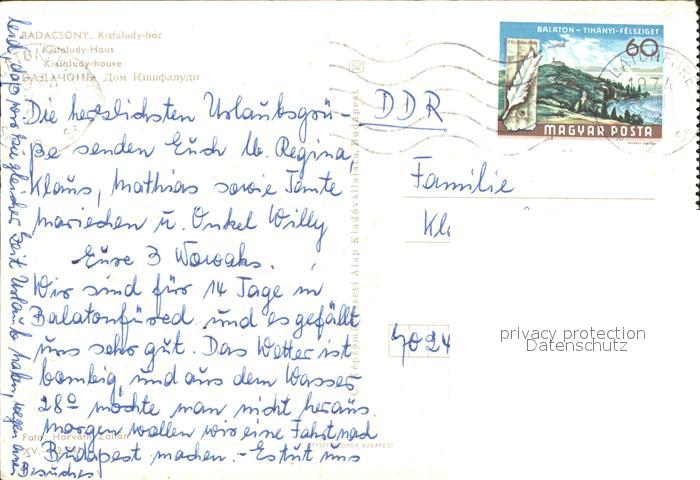 BADACSONY. Kisfaludy-ház
Kisfaludy-Haus
Kisfaludy-house
БАДАЧОНЬ Дом Кишфалуди
Die herzlichsten Urlaubsgrü-
ße senden Euch lb. Regina,
Klaus, Mathias sowie Tante
Mariechen u. Onkel Willy
Eure 3 Wowaks.
Wir sind für 14 Tage in
Balatonfüred und es gefällt
uns sehr gut. Das Wetter ist
bombig, und aus dem Wasser
28° möchte man nicht heraus.
Morgen wollen wir eine Fahrt nach
Budapest machen. - Es tut uns
leid, daß wir zu gleicher Zeit Urlaub haben, wegen Eures
Besuches
Foto: Horváth Zoltán
Képzőművészeti Alap Kiadóvállalata, Budapest
BALATON - TIHANYI-FÉLSZIGET
60
MAGYAR POSTA
DDR
Familie
Kl
7024
privacy protection
Datenschutz